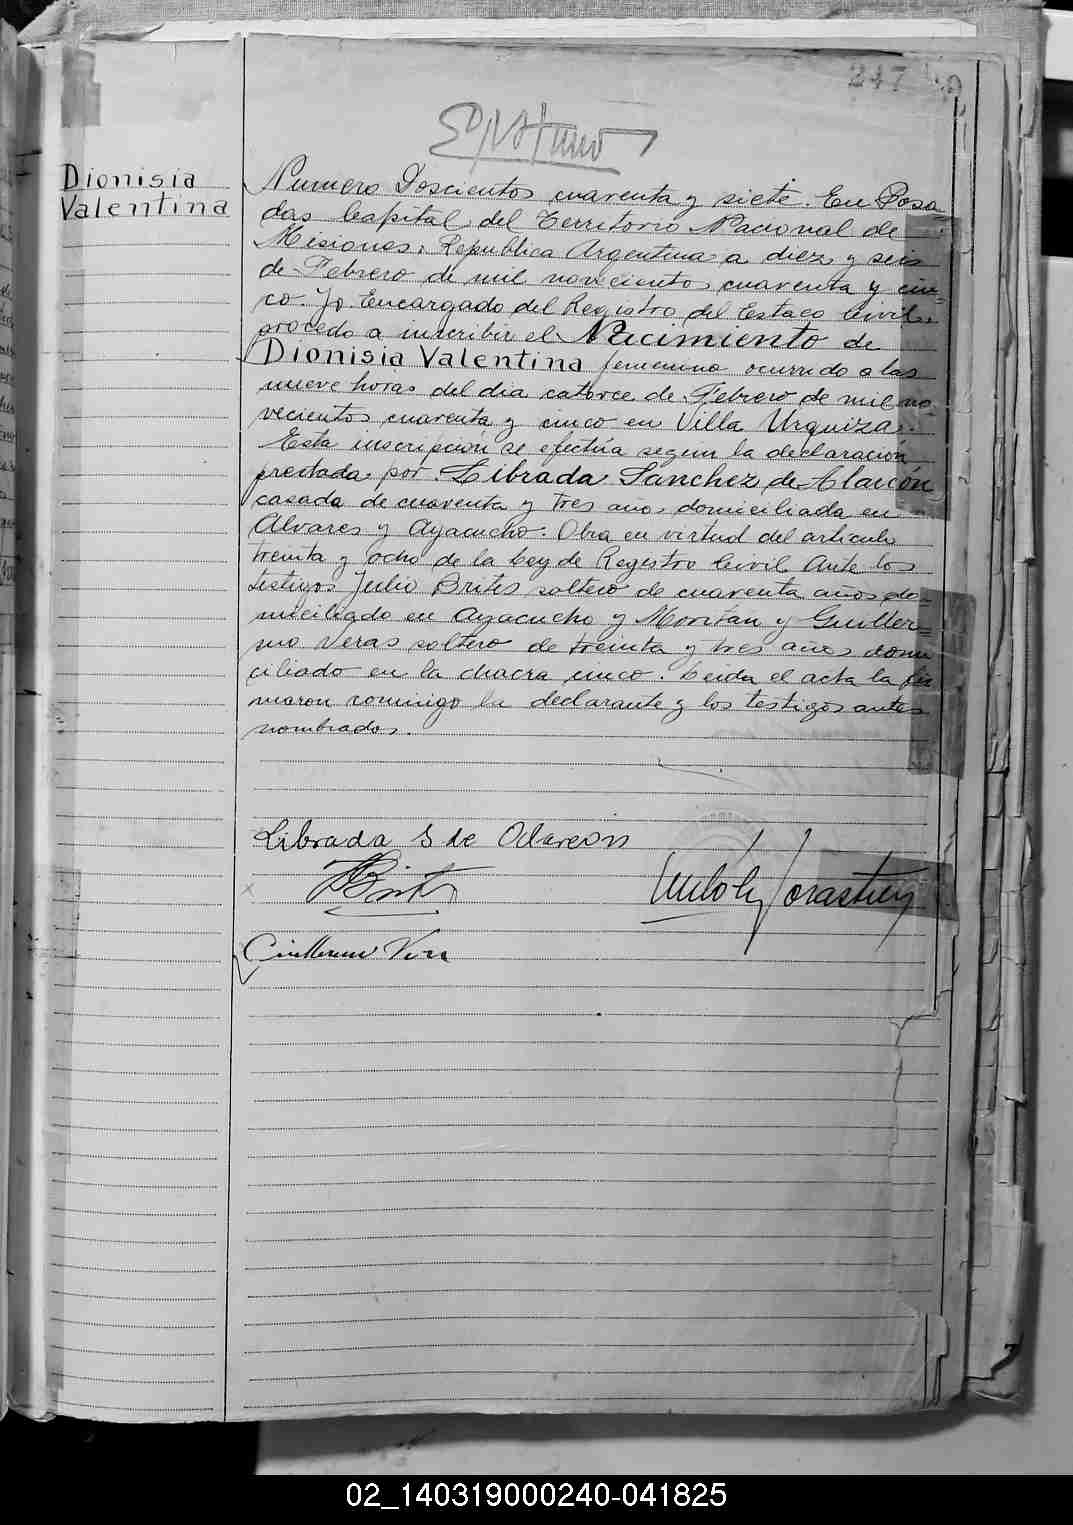 247
Dionisia
Valentina
Numero Doscientos cuarenta y siete. En Posa
das Capital del Territorio Nacional de
Misiones, Republica Argentina a diez y seis
de Febrero de mil novecientos cuarenta y cin=
co. Yo Encargado del Registro del Estado Civil,
procedo a inscribir el Nacimiento de
Dionisia Valentina femenino ocurrido a las
nueve horas del dia catorce de Febrero de mil no-
vecientos cuarenta y cinco en Villa Urquiza.
Esta inscripción se efectúa segun la declaración
prestada por Librada Sanchez de Alarcón
casada de cuarenta y tres años domiciliada en
Alvares y Ayacucho. Obra en virtud del articulo
treinta y ocho de la Ley de Registro Civil Ante los
testigos Julio Brites soltero de cuarenta años do-
miciliado en Ayacucho y Moritán y Guiller=
mo Veras soltero de treinta y tres años domi
ciliado en la chacra cinco. Leida el acta la fir
maron conmigo la declarante y los testigos antes
nombrados.
Librada S de Alarcón
Brites
Guillermo Vera
02_140319000240-041825